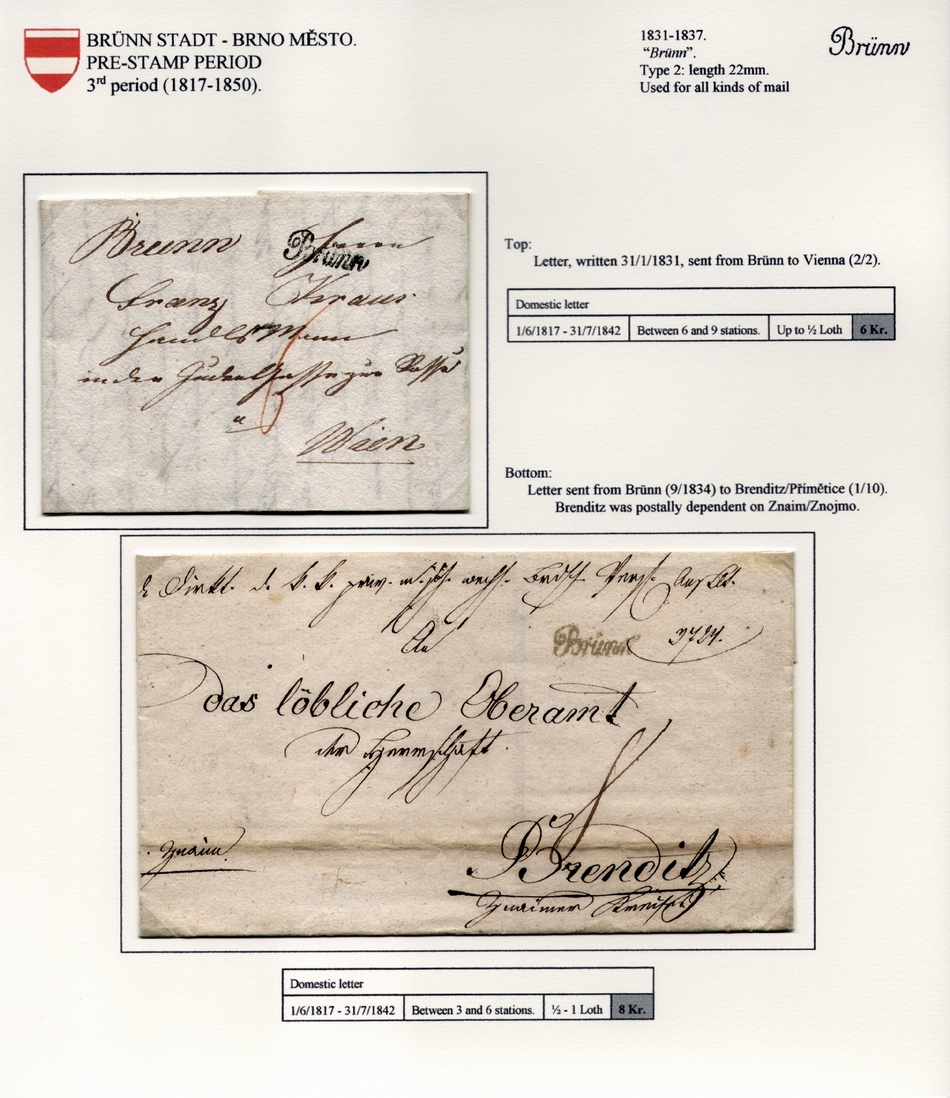 BRÜNN STADT - BRNO MĚSTO.
PRE-STAMP PERIOD
3rd period (1817-1850).
1831-1837.
“Brünn”.
Type 2: length 22mm.
Used for all kinds of mail
Brünn
Brünn
Brünn Herrn
Franz Kraus
Handelsmann
in der
Wien
Top:
Letter, written 31/1/1831, sent from Brünn to Vienna (2/2).
Domestic letter
1/6/1817 - 31/7/1842 Between 6 and 9 stations. Up to ½ Loth 6 Kr.
Bottom:
Letter sent from Brünn (9/1834) to Brenditz/Přímětice (1/10).
Brenditz was postally dependent on Znaim/Znojmo.
An
Brünn
das löbliche Oberamt
der Herrschaft
Znaim
Brenditz
Znaimer Kreises
Domestic letter
1/6/1817 - 31/7/1842 Between 3 and 6 stations. ½ - 1 Loth 8 Kr.